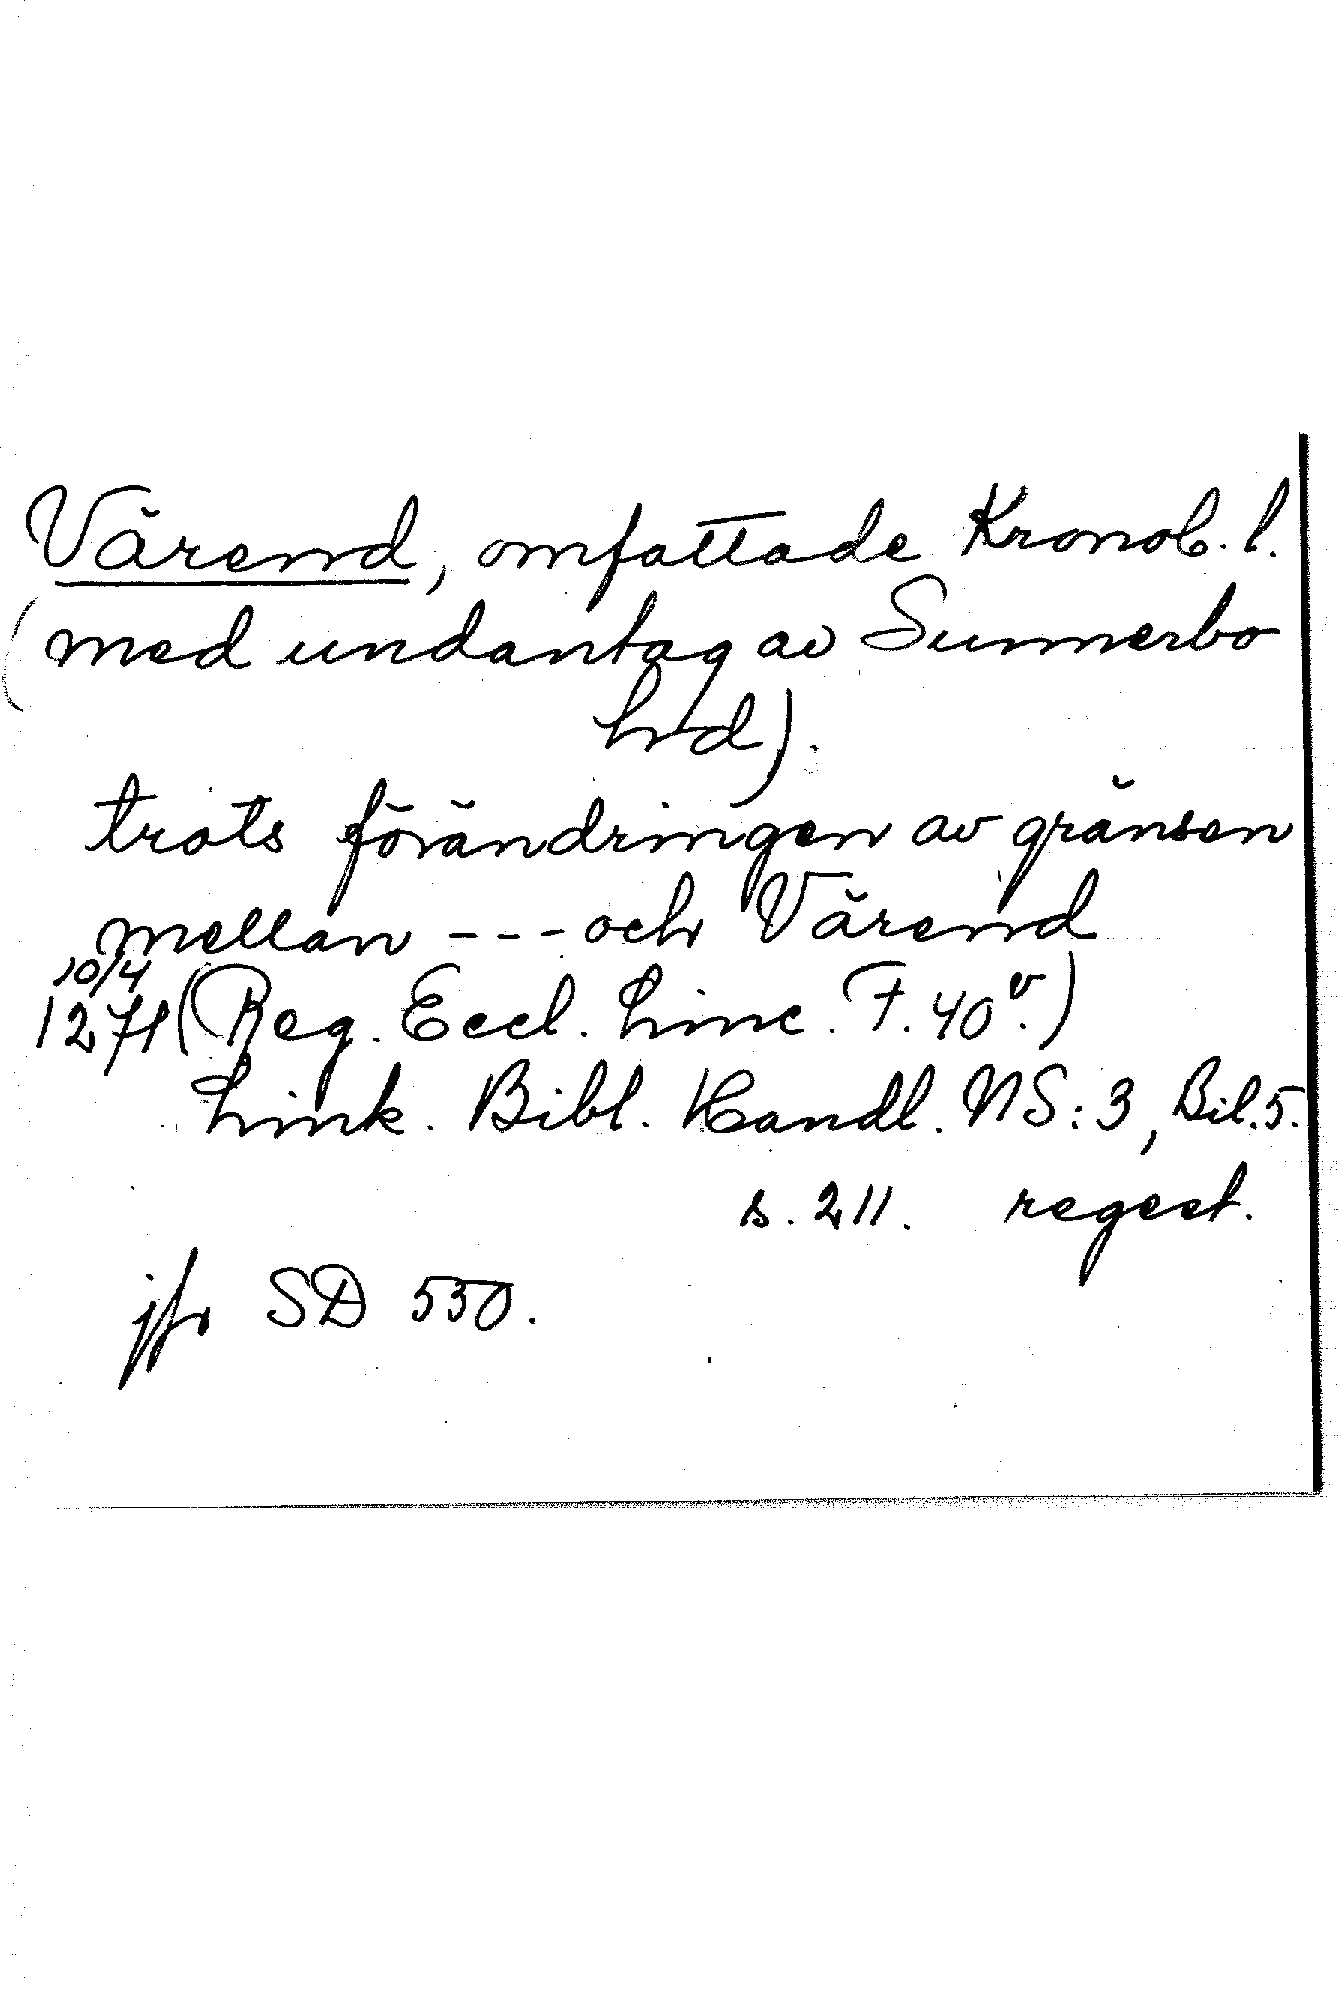 Värend, omfattade Kronob. l.
(med undantag av Sunnerbo
hrd).
trots förändringen av gränsen
mellan --- och Värend
10/4
1271 (Reg. Eccl. Linc. F. 40v.)
Link. Bibl. Handl. NS:3, Bil.5.
s. 211. regest.
jfr SD 550.